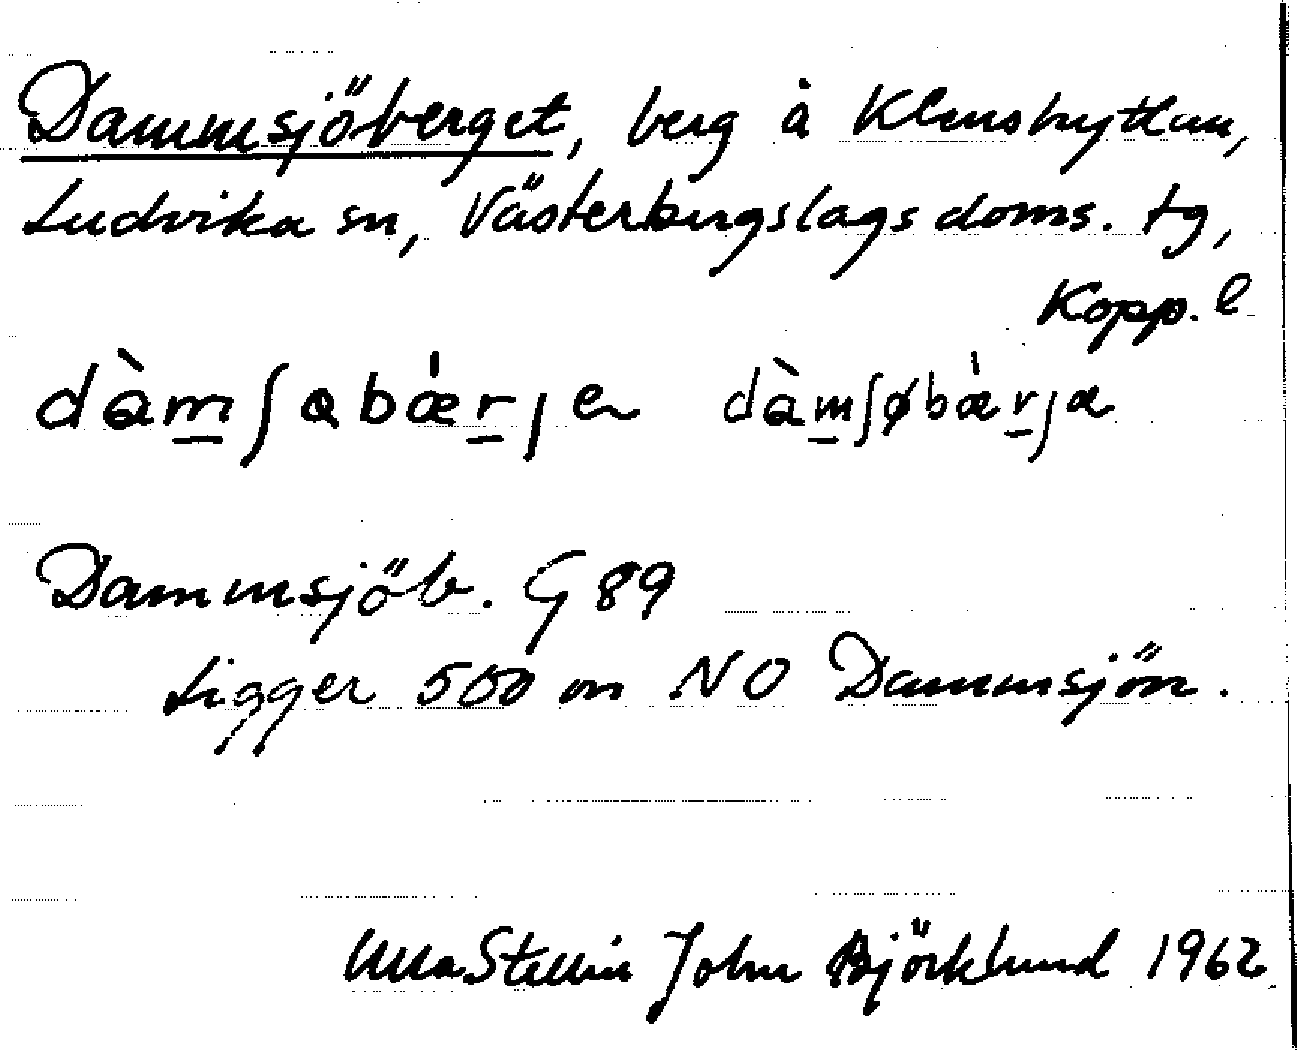 Dammsjöberget, berg å Klenshyttan,
Ludvika sn, Västerbergslags doms. tg,
Kopp. l
dàm̲ʃɑbǽr̲ȷe dàm̲ʃøbǽr̲ȷæ
Dammsjöb. G 89
Ligger 500 m NO Dammsjön.
Ulla Stellin John Björklund 1962